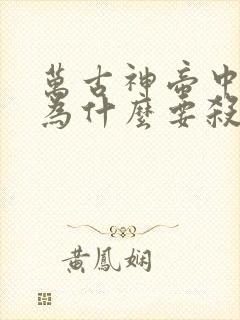 萬古神帝中
為什麼要殺
黃鳳嫻